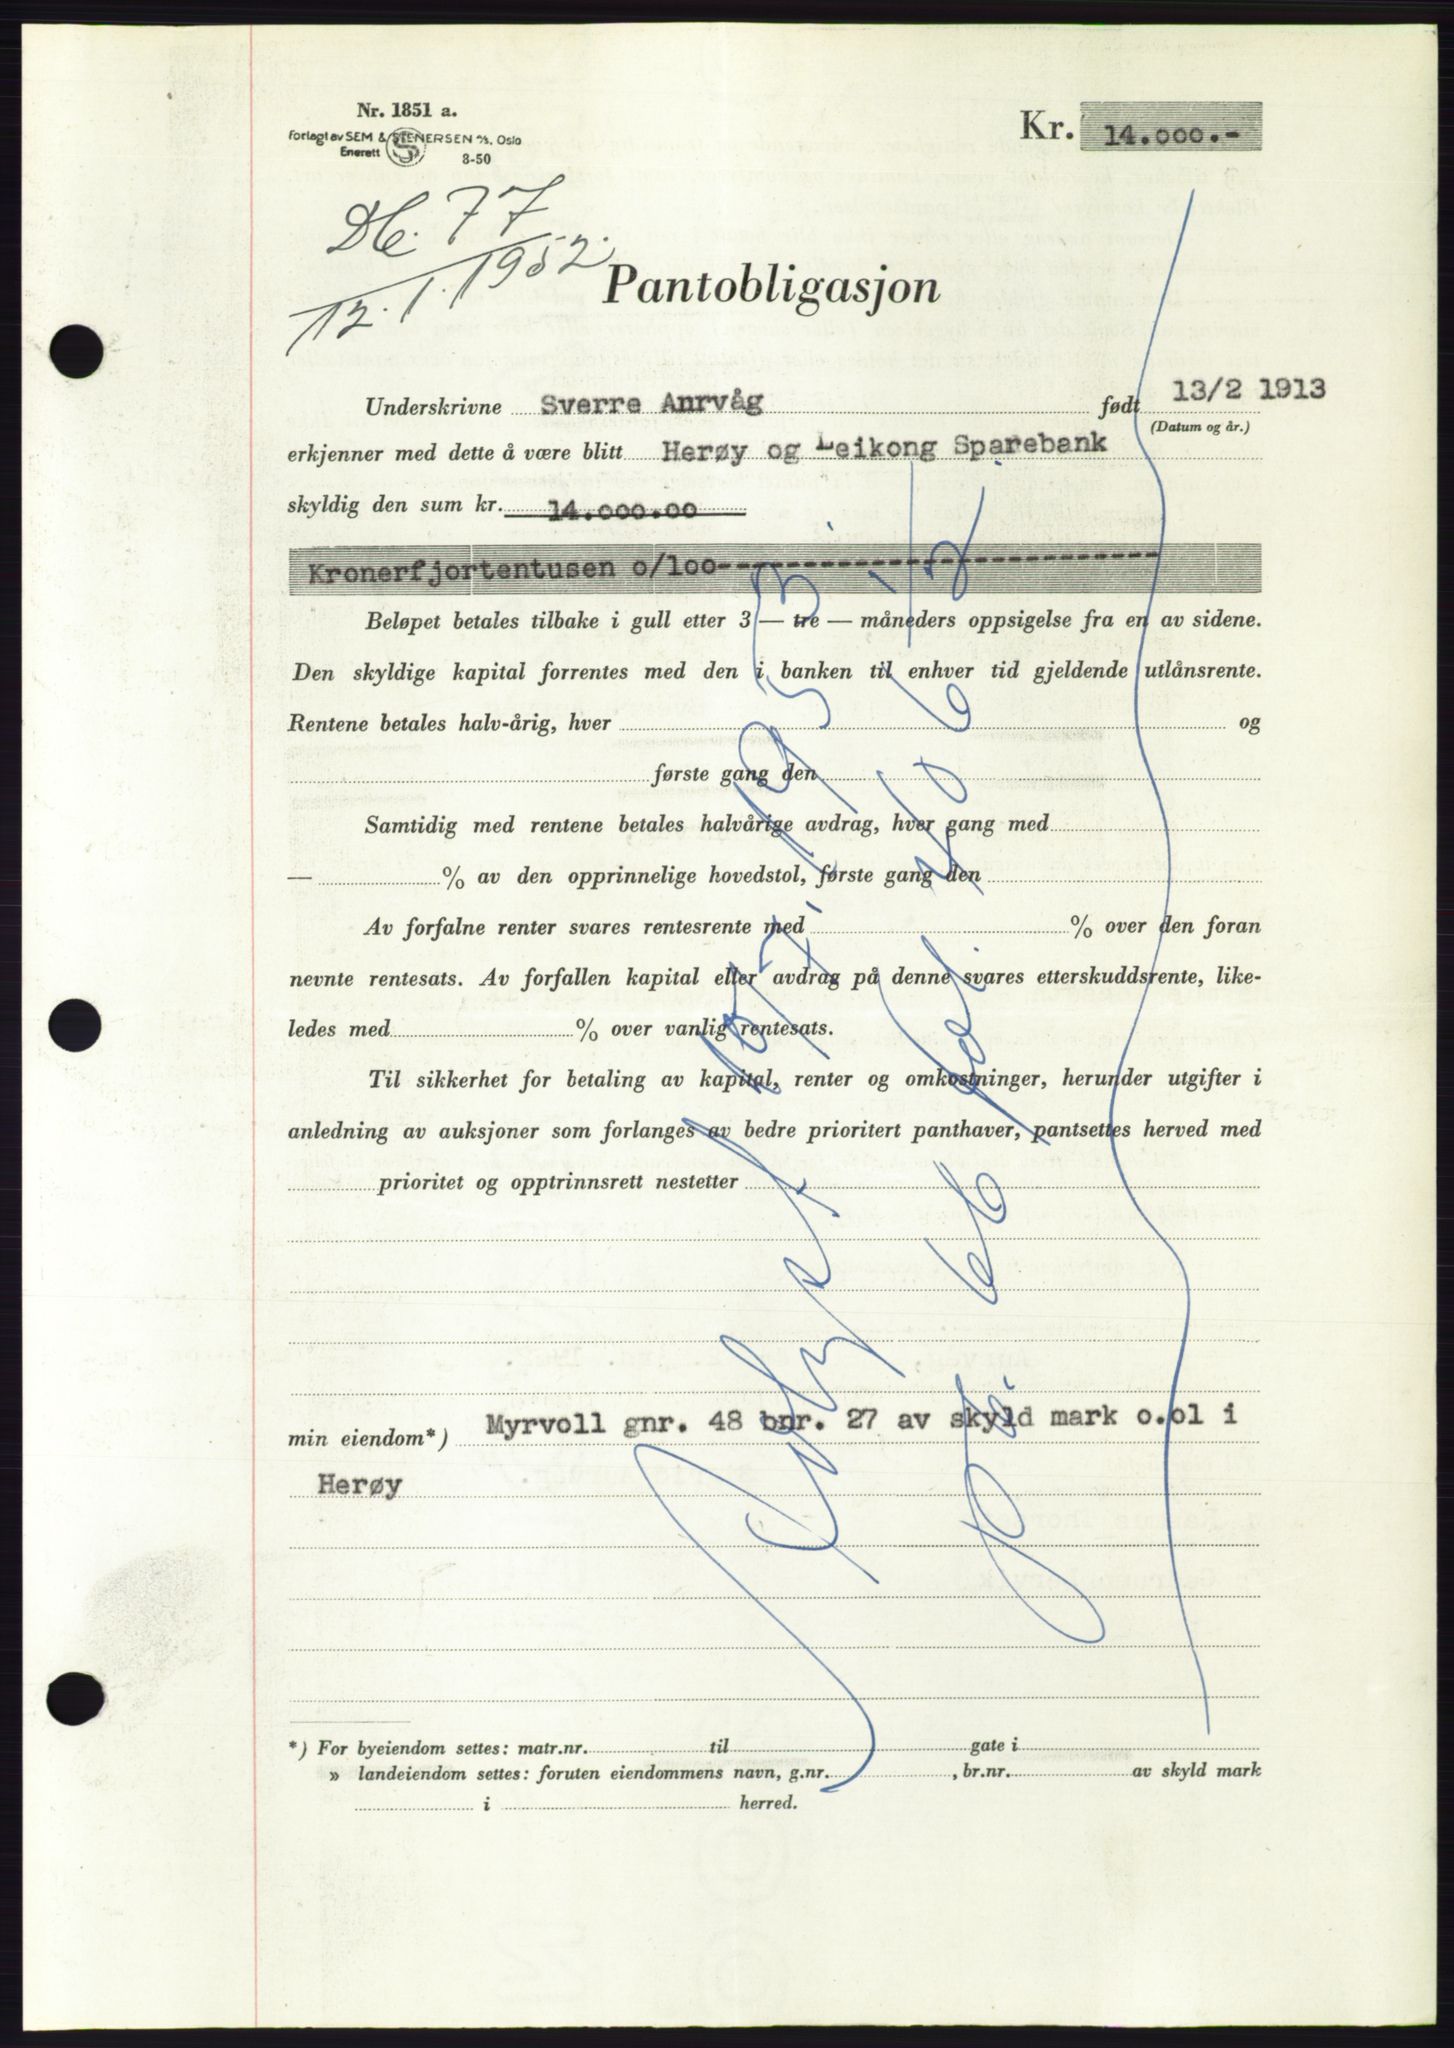 Nr. 1851 a.
Forlagt av SEM & STENERSEN A/S, Oslo
Enerett 8-50
Kr. 14.000.-
Db. 77
12.1.1952.
Pantobligasjon
Underskrivne Sverre Anrvåg født 13/2 1913
(Datum og år.)
erkjenner med dette å være blitt Herøy og Leikong Sparebank
skyldig den sum kr. 14.000.00
Kronerfjortentusen o/100---------------------------
Beløpet betales tilbake i gull etter 3 — tre — måneders oppsigelse fra en av sidene.
Den skyldige kapital forrentes med den i banken til enhver tid gjeldende utlånsrente.
Rentene betales halv-årig, hver og
første gang den
Samtidig med rentene betales halvårige avdrag, hver gang med
— % av den opprinnelige hovedstol, første gang den
Av forfalne renter svares rentesrente med % over den foran
nevnte rentesats. Av forfallen kapital eller avdrag på denne svares etterskuddsrente, like-
ledes med % over vanlig rentesats.
Til sikkerhet for betaling av kapital, renter og omkostninger, herunder utgifter i
anledning av auksjoner som forlanges av bedre prioritert panthaver, pantsettes herved med
prioritet og opptrinnsrett nestetter
min eiendom*) Myrvoll gnr. 48 bnr. 27 av skyld mark o.ol i
Herøy
*) For byeiendom settes: matr.nr. til gate i
» landeiendom settes: foruten eiendommens navn, g.nr. , br.nr. av skyld mark
i herred.